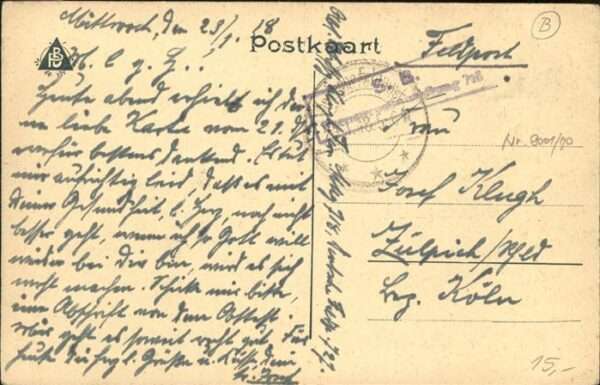 Mittwoch, den 23/1. 18
Postkaart
Feldpost
B
M. l. g. H.!
Heute abend erhielt ich dei
ne liebe Karte vom 21. ds
wofür bestens dankend. Es tut
mir aufrichtig leid, dass es mit
deiner Gesundheit, l. Herz, noch nicht
besser geht, wenn ich so Gott will
wieder bei dir bin, wird es sich
wohl machen. Schicke mir bitte,
eine Abschrift von dem Attest.
Mir geht es soweit recht gut. Für
heute die herzl. Grüße u. Küsse dein
lb. Josef
S. B.
Frau
Nr. 9001/70
Josef Klugh
Zülpich/Rhld
Bez. Köln
15,-